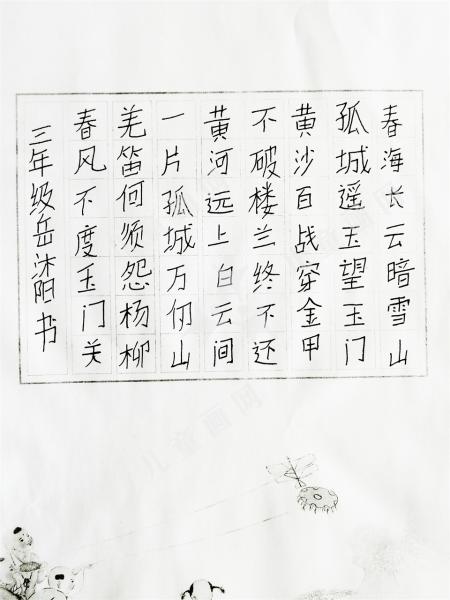 春海长云暗雪山
孤城遥玉望玉门
黄沙百战穿金甲
不破楼兰终不还
黄河远上白云间
一片孤城万仞山
羌笛何须怨杨柳
春风不度玉门关
三年级岳沐阳书
儿童画网